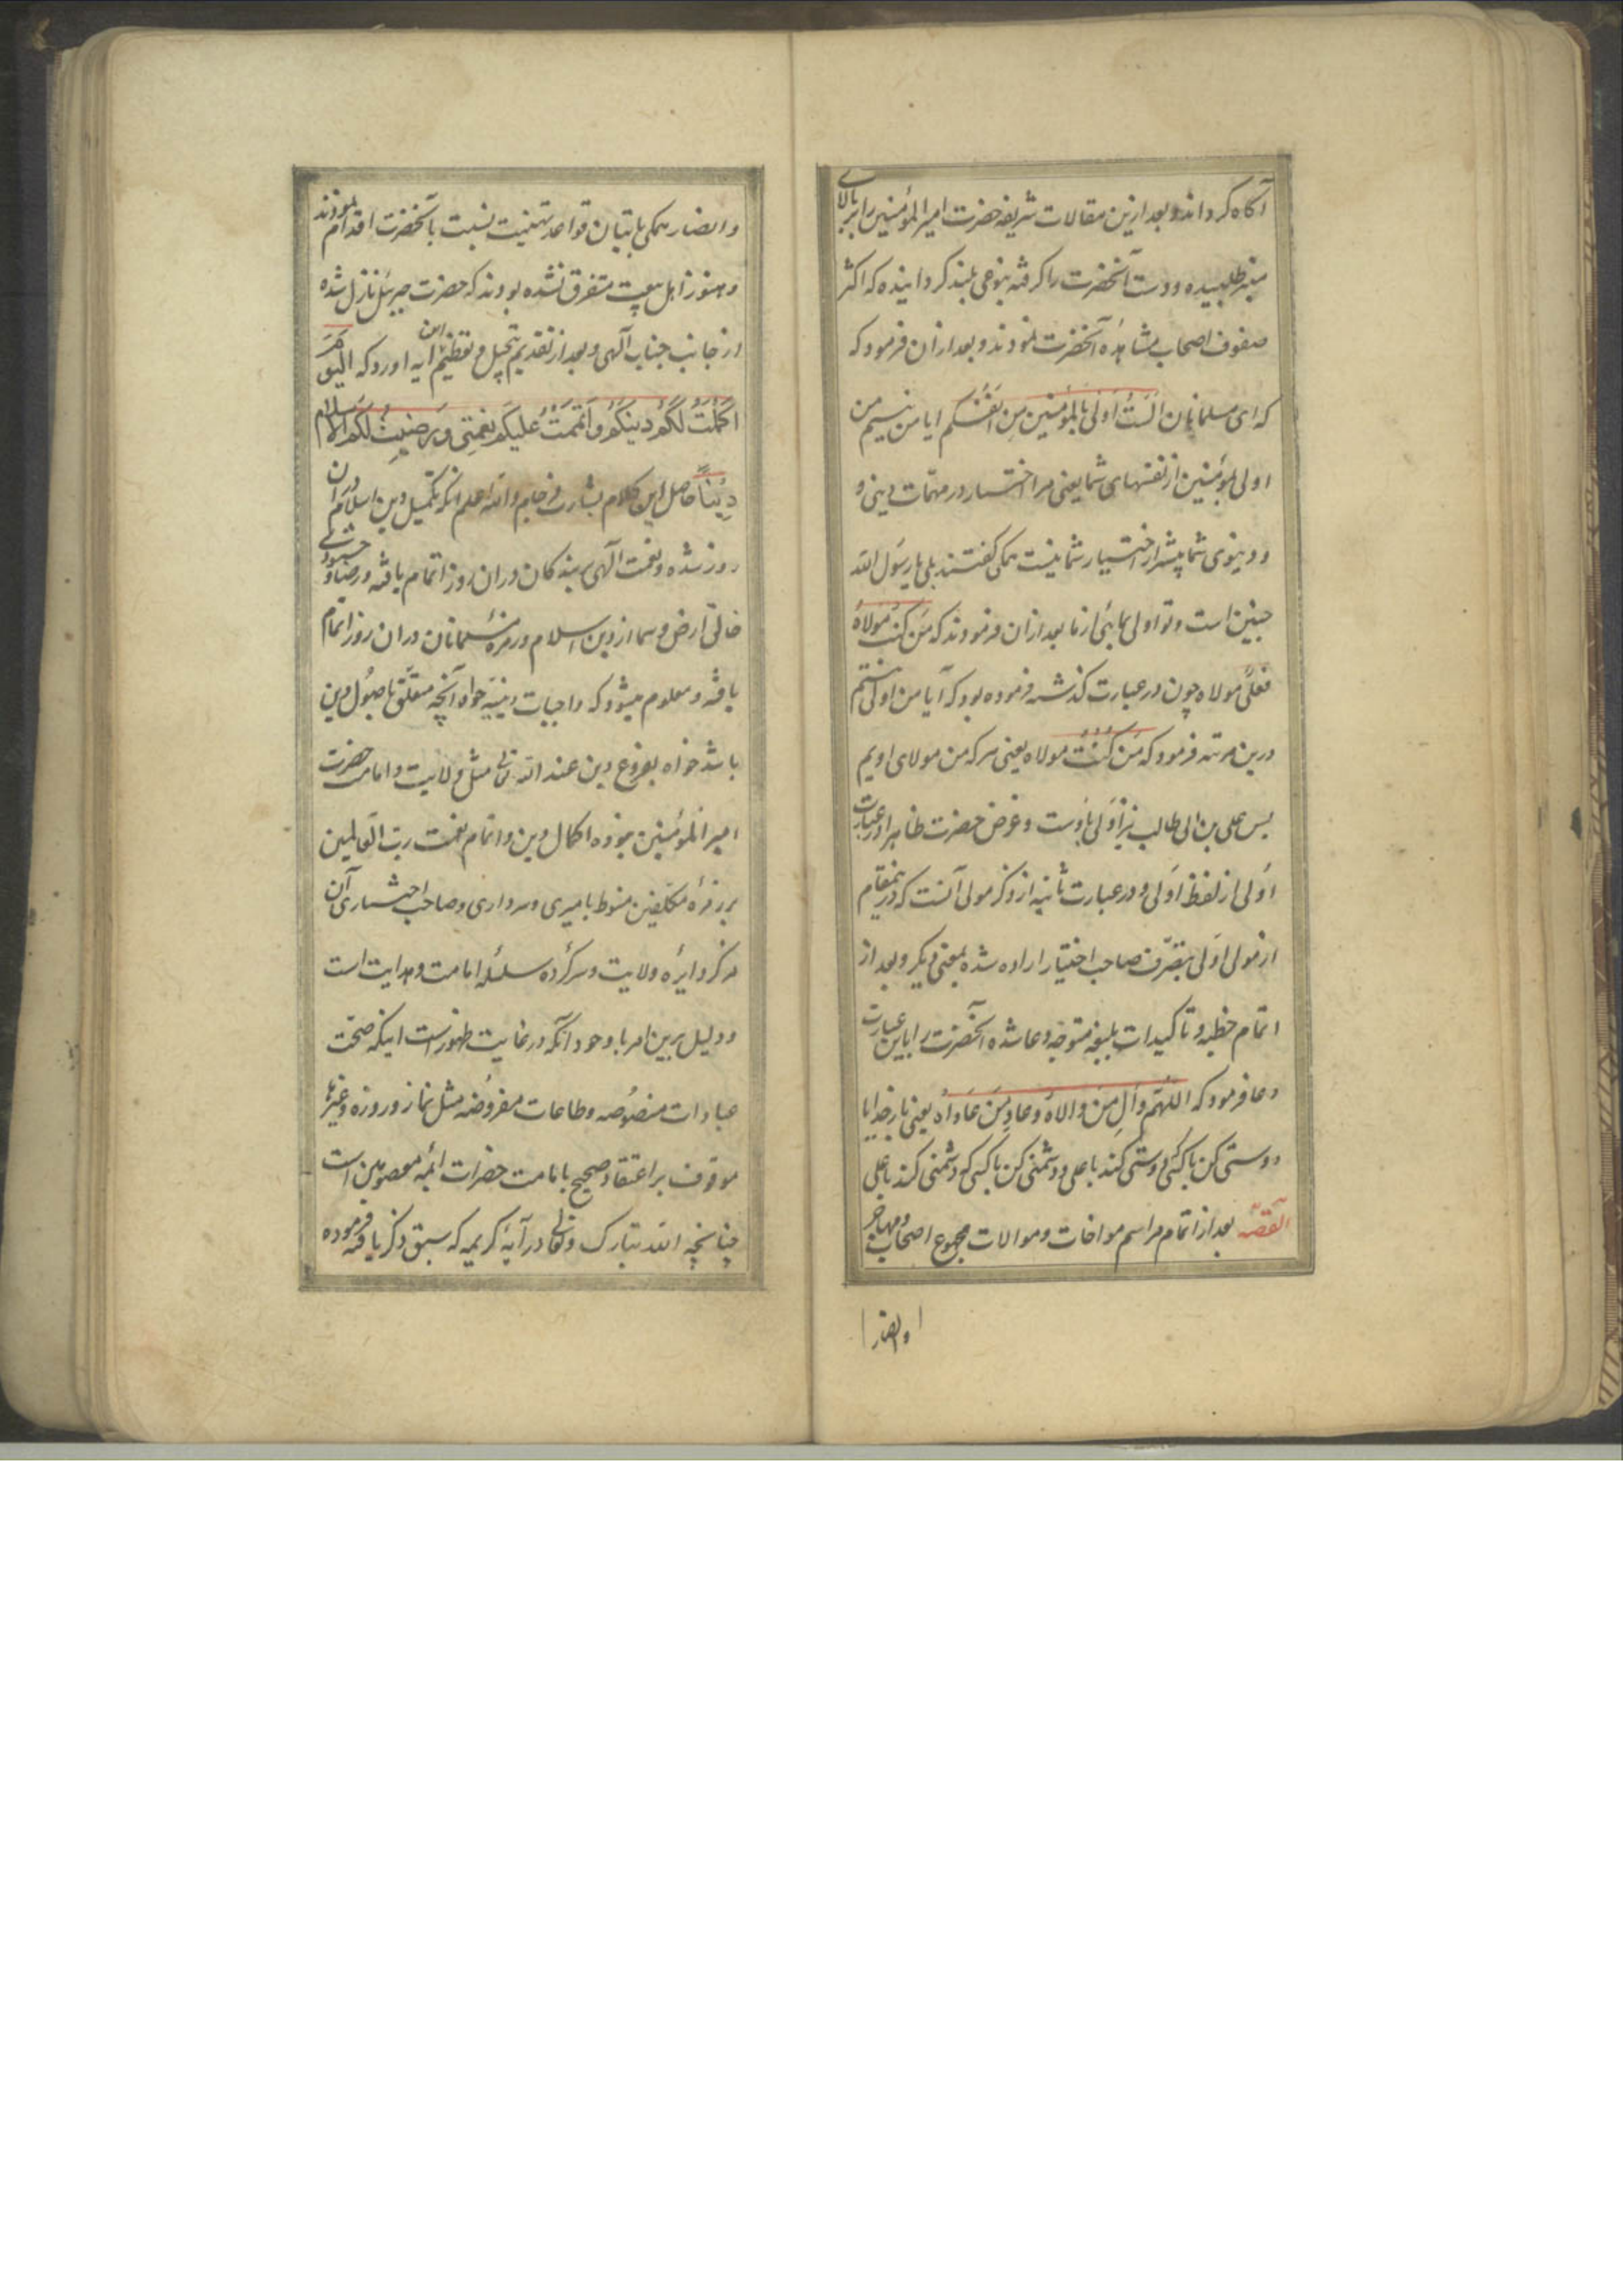 آکاه کرداند و بعد ازین مقالات شریفه حضرت امیرالمؤمنین را بر بالای
منبر طلبیده و دست آنحضرت را کرفته بنوعی بلند کردانیده که اکثر
صفوف اصحاب مشاهدهٔ آنحضرت نمودند و بعد ازان فرمود که
که ای مسلمانان اَلَستُ اَولی بالمؤمنین مِن اَنفُسکم ایا من نیستم من
اولی بمؤمنین از نفسهای شما یعنی مرا اختیار در مهمّات دینی و
و دینوی شما پیشتر از اختیار شما نیست همکی کفتند بلی یا رسول الله
چنین است و تو اولی بمایی از ما بعد ازان فرمودند که مَن کنتُ مَولاهُ
فعلیٌّ مولاه چون در عبارت کذشته فرموده بود که آیا من اولی نیستم
درین مرتبه فرمود که مَن کُنتُ مولاه یعنی هر که من مولای اویم
پس علی بن ابی طالب نیز اَولی باوست و غرض حضرت ظاهرا در عبارت
اَولی از لفظ اَولی و در عبارت ثانیه از ذکر مولی آنست که درینمقام
از مولی اَولی بتصرّف صاحب اختیار اراده شده نه بمعنی دیکر و بعد از
اتمام خطبه و تاکیدات بلیغه متوجّه دعا شده آنحضرت را باین عبارت
دعا فرمود که اللهمّ وَالِ مَن والاهُ وعادِ مَن عَاداهُ یعنی بار خدایا
دوستی کن با کسی که دوستی کند با علی و دشمنی کن با کسی که دشمنی کند با علی
القصّه بعد از اتمام مراسم مواخات و موالات مجموع اصحاب و مهاجر
وانصار
وانصار همکی باتیان قواعد تهنیت نسبت بآنحضرت اقدام نمودند
و هنوز اهل بیعت متفرق نشده بودند که حضرت جبرئیل نازل شده
از جانب جناب آلهی و بعد از تقدیم تبجیل و تعظیم این ایه اورد که الیَومَ
اَکمَلتُ لَکُم دینَکُم وَاَتمَمتُ عَلَیکُم نِعمَتی وَرَضیتُ لَکُم الاسلامَ
دِینًا حاصل این کلام بشارت فرجام والله اعلم انکه تکمیل دین اسلام در ان
روز شده و نعمت آلهی ببندکان دران روز اتمام یافته و رضا و خشنودی
خالق ارض و سما از دین اسلام در زمرهٔ مسلمانان دران روز اتمام
یافته و معلوم میشود که واجبات دینیّه خواه آنچه متعلّق باصُول دین
باشد خواه بفروع دین عند الله تعالی مثل ولایت و امامت حضرت
امیرالمؤمنین نبوده اکمال دین و اتمام نعمت ربّ العالمین
بر زمرهٔ مکلّفین منوط بامیری و سرداری و صاحب اختیاری آن
مرکز دایرهٔ ولایت و سرکردهٔ سلسلهٔ امامت و هدایت است
و دلیل برین امر با وجود آنکه در غایت ظهور است اینکه صحّت
عبادات منصُوصه و طاعات مفروُضه مثل نماز و روزه و غیرها
موقوف بر اعتقاد صحیح بامامت حضرات ائمّه معصومین است
چنانچه الله تبارک و تعالی در آیهٔ کریمه که سبق ذکر یافته فرموده